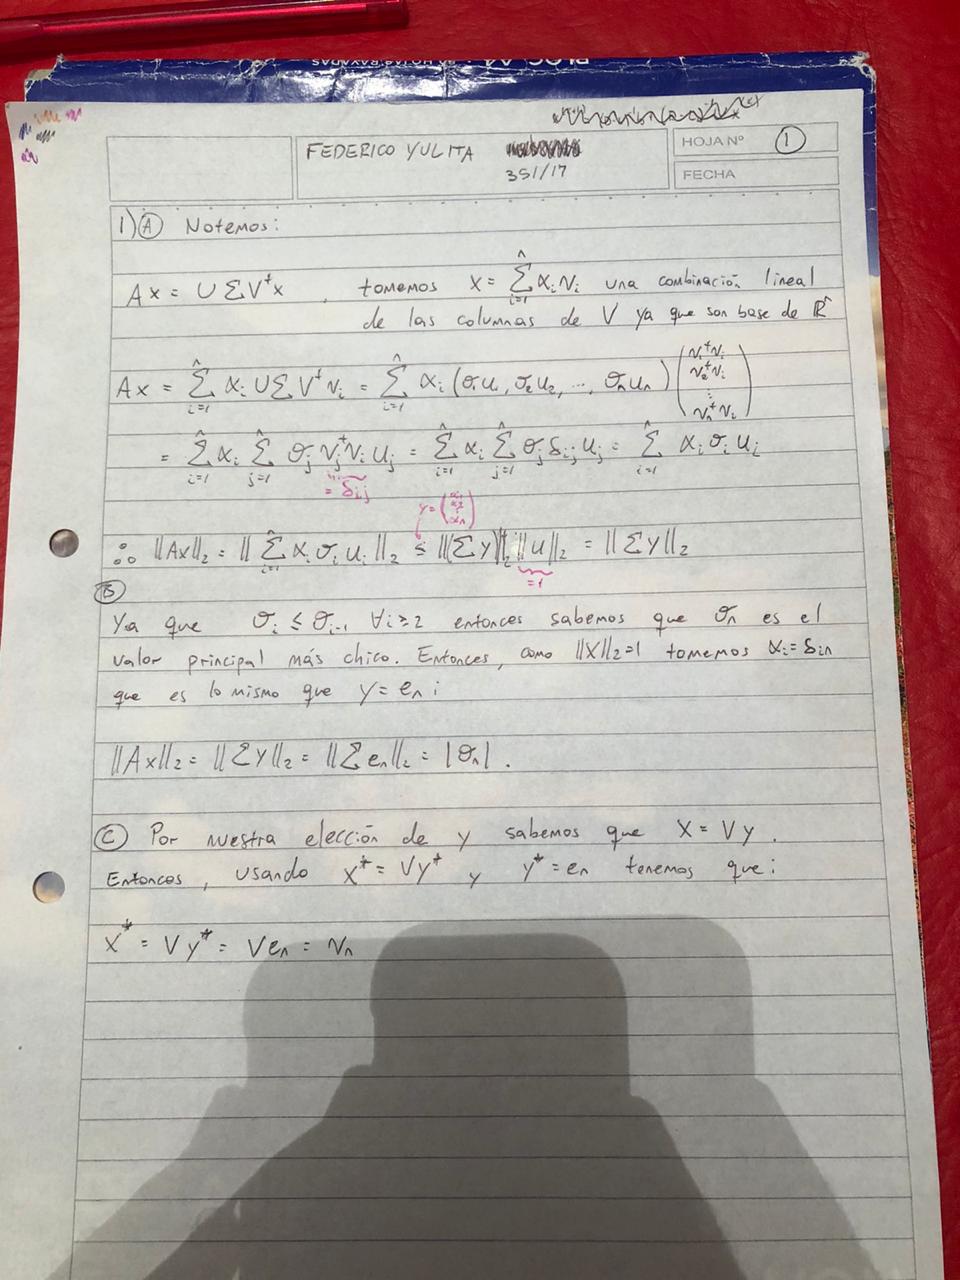 BLOC A4
FEDERICO YULITA
351/17
HOJA Nº 1
FECHA
1) A Notemos:
Ax = UΣVᵗx , tomemos X = Σⁿᵢ₌₁ αᵢvᵢ una combinación lineal
de las columnas de V ya que son base de ℝⁿ
Ax = Σⁿᵢ₌₁ αᵢ UΣVᵗvᵢ = Σⁿᵢ₌₁ αᵢ (σ₁u₁, σ₂u₂, ..., σₙuₙ) (v₁ᵗvᵢ v₂ᵗvᵢ ⋮ vₙᵗvᵢ)
= Σⁿᵢ₌₁ αᵢ Σⁿⱼ₌₁ σⱼ vⱼᵗvᵢ uⱼ = Σⁿᵢ₌₁ αᵢ Σⁿⱼ₌₁ σⱼ δᵢⱼ uⱼ = Σⁿᵢ₌₁ αᵢ σᵢ uᵢ
= δᵢⱼ
y = (α₁ α₂ ⋮ αₙ)
∴ ||Ax||₂ = || Σⁿᵢ₌₁ αᵢ σᵢ uᵢ ||₂ ≤ ||(Σy)ᵗ||₂ ||U||₂ = ||Σy||₂
=1
B
Ya que σᵢ ≤ σᵢ₋₁ ∀i≥2 entonces sabemos que σₙ es el
valor principal más chico. Entonces, como ||X||₂=1 tomemos αᵢ=δᵢₙ
que es lo mismo que y = eₙ:
||Ax||₂ = ||Σy||₂ = ||Σeₙ||₂ = |σₙ|.
C Por nuestra elección de y sabemos que X = Vy.
Entonces, usando x* = Vy* y y* = eₙ tenemos que:
X* = Vy* = Veₙ = vₙ